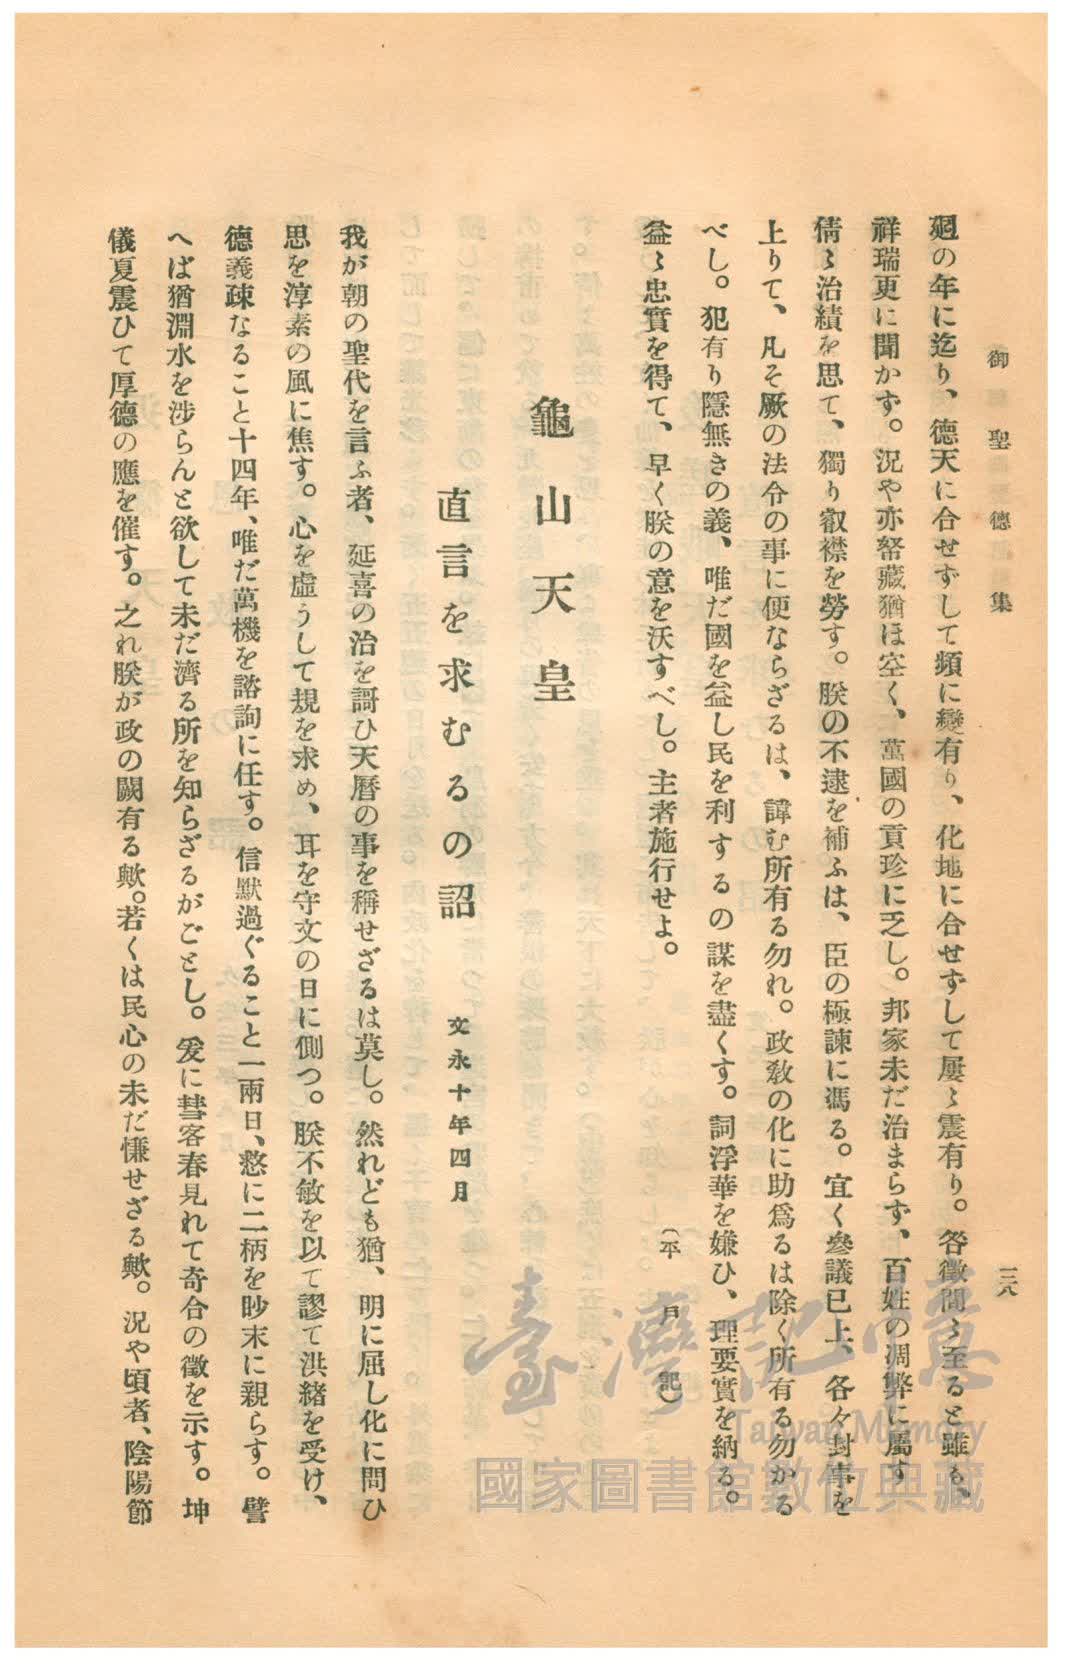 御聖德集
二八
廻の年に迄り、德天に合せずして頻に變有り、化地に合せずして屢〻震有り。咎徵間〻至ると雖も、
祥瑞更に聞かず。況や亦帑藏猶ほ空く、萬國の貢珍に乏し。邦家未だ治まらず、百姓の凋弊に屬す
倩〻治績を思て、獨り叡襟を勞す。朕の不逮を補ふは、臣の極諫に馮る。宜く參議已上、各々封事を
上りて、凡そ厥の法令の事に便ならざるは、諱む所有る勿れ。政敎の化に助爲るは除く所有る勿かる
べし。犯有り隱無きの義、唯だ國を益し民を利するの謀を盡くす。詞浮華を嫌ひ、理要實を納る。
益〻忠實を得て、早く朕の意を沃すべし。主者施行せよ。
(平戶記)
龜山天皇
直言を求むるの詔 文永十年四月
我が朝の聖代を言ふ者、延喜の治を謌ひ天曆の事を稱せざるは莫し。然れども猶、明に屈し化に問ひ
思を淳素の風に焦す。心を虛うして規を求め、耳を守文の日に側つ。朕不敏を以て謬て洪緖を受け、
德義疎なること十四年、唯だ萬機を諮詢に任す。信默過ぐること一兩日、憖に二柄を眇末に親らす。譬
へば猶淵水を涉らんと欲して未だ濟る所を知らざるがごとし。爰に彗客春見れて奇合の徵を示す。坤
儀夏震ひて厚德の應を催す。之れ朕が政の闕有る歟。若くは民心の未だ慊せざる歟。況や頃者、陰陽節
臺灣記憶
Taiwan Memory
國家圖書館數位典藏